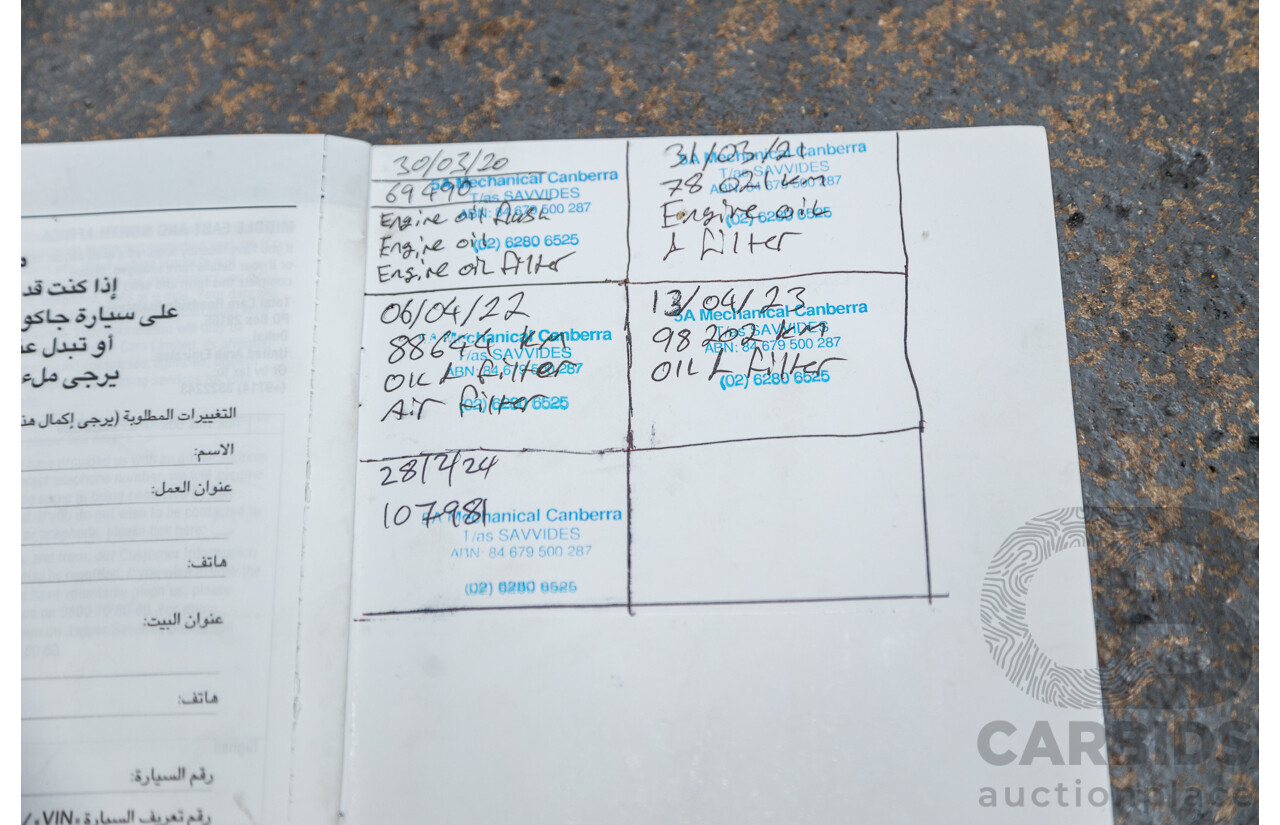 إذا كنت قد
على سيارة جاكو
أو تبدل عن
يرجى ملء
التغييرات المطلوبة (يرجى إكمال هذ
الاسم:
عنوان العمل:
هاتف:
عنوان البيت:
هاتف:
رقم السيارة:
رقم تعريف السيارة «VIN»
30/03/20
69490
Engine oil flush
Engine oil
Engine oil filter
5A Mechanical Canberra
T/as SAVVIDES
ABN: 84 679 500 287
(02) 6280 6525
31/03/21
78 021 km
Engine oil
& Filter
5A Mechanical Canberra
T/as SAVVIDES
ABN: 84 679 500 287
(02) 6280 6525
06/04/22
88644 km
OIL & Filter
Air Filter
5A Mechanical Canberra
T/as SAVVIDES
ABN: 84 679 500 287
(02) 6280 6525
13/04/23
98202 km
OIL & Filter
5A Mechanical Canberra
T/as SAVVIDES
ABN: 84 679 500 287
(02) 6280 6525
107981
5A Mechanical Canberra
T/as SAVVIDES
ABN: 84 679 500 287
(02) 6280 6525
CARBIDS
auctionplace